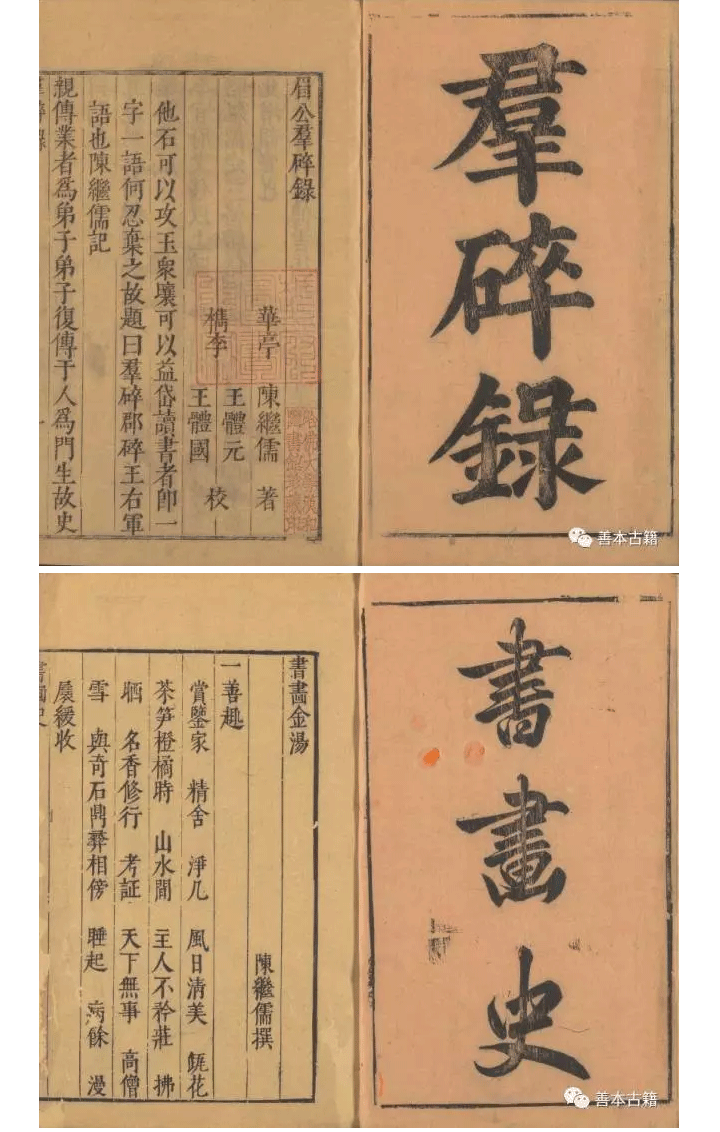 羣碎錄
眉公羣碎錄
華亭 陳繼儒 著
檇李 王體元
王體國 校
他石可以攻玉衆壤可以益岱讀書者卽一
字一語何忍棄之故題曰羣碎郡碎王右軍
語也陳繼儒記
親傳業者爲弟子弟子復傳于人爲門生故史
善本古籍
書畫史
書畫金湯
陳繼儒撰
一善趣
賞鑒家 精舍 淨几 風日清美 缾花
茶笋橙橘時 山水間 主人不矜莊 拂
晒 名香修行 考証 天下無事 高僧
雪 與奇石鼎彛相傍 睡起 病餘 漫
展緩收
善本古籍